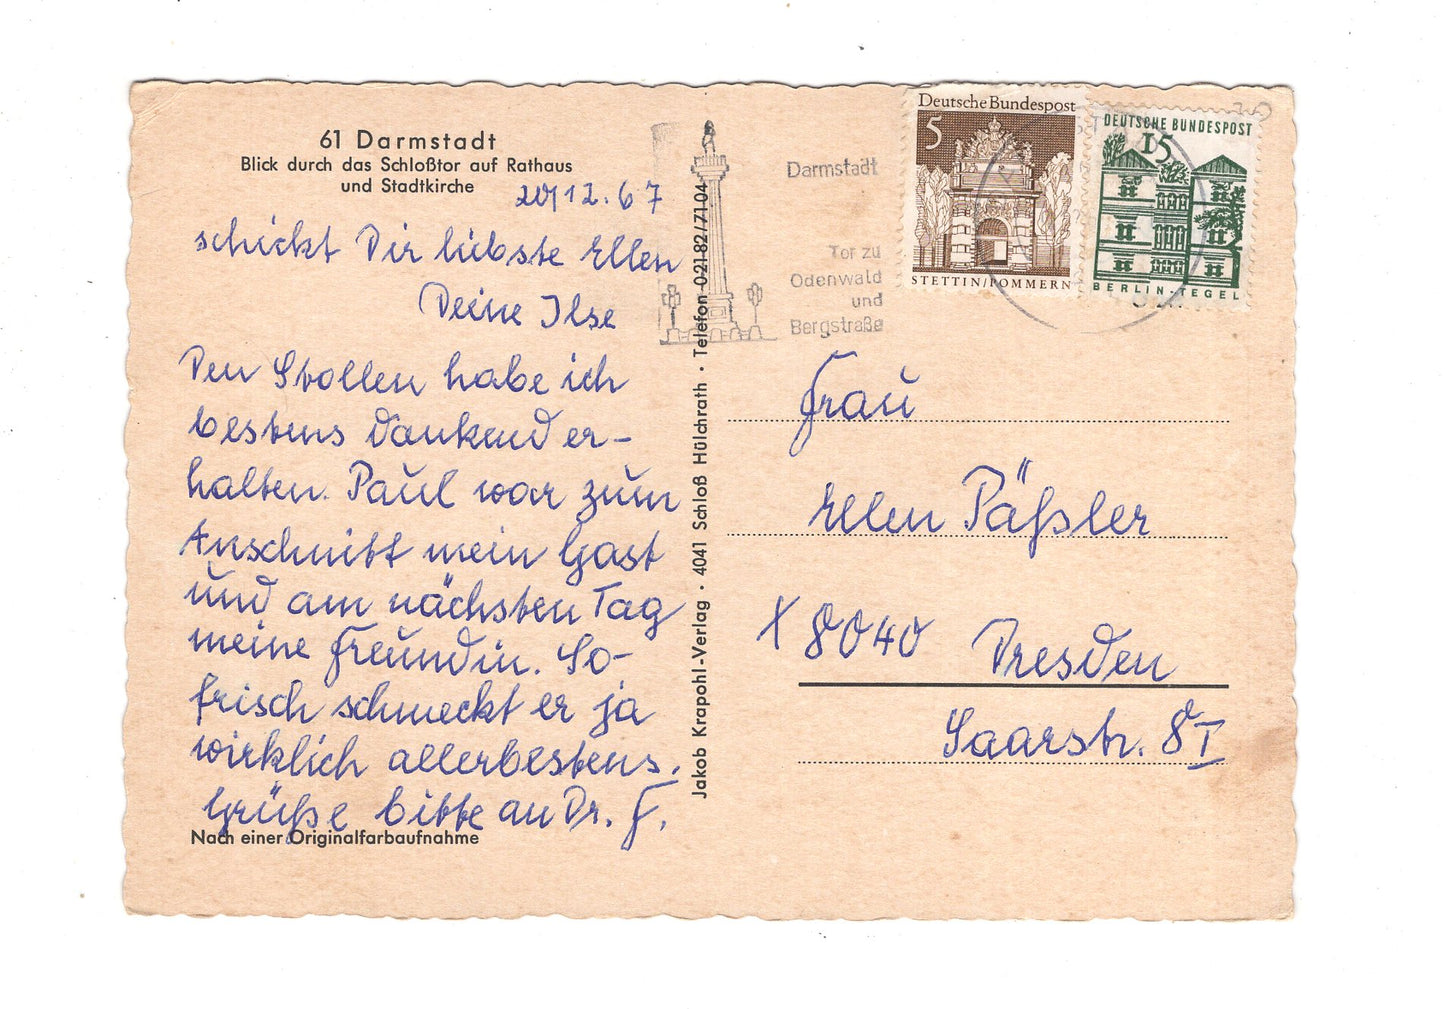 61 Darmstadt
Blick durch das Schloßtor auf Rathaus
und Stadtkirche
20/12.67
schickt Dir liebste Ellen
Deine Ilse
Den Stollen habe ich
bestens dankend er-
halten. Paul war zum
Anschnitt mein Gast
und am nächsten Tag
meine Freundin. So-
frisch schmeckt er ja
wirklich allerbestens.
Grüße bitte an Dr. F.
Nach einer Originalfarbaufnahme
Jakob Krapohl-Verlag · 4041 Schloß Hülchrath · Telefon 02182/7104
Darmstadt
Tor zu
Odenwald
und
Bergstraße
Deutsche Bundespost
5
STETTIN/POMMERN
DEUTSCHE BUNDESPOST
15
BERLIN-TEGEL
Frau
Ellen Päßler
X 8040 Dresden
Saarstr. 8 I